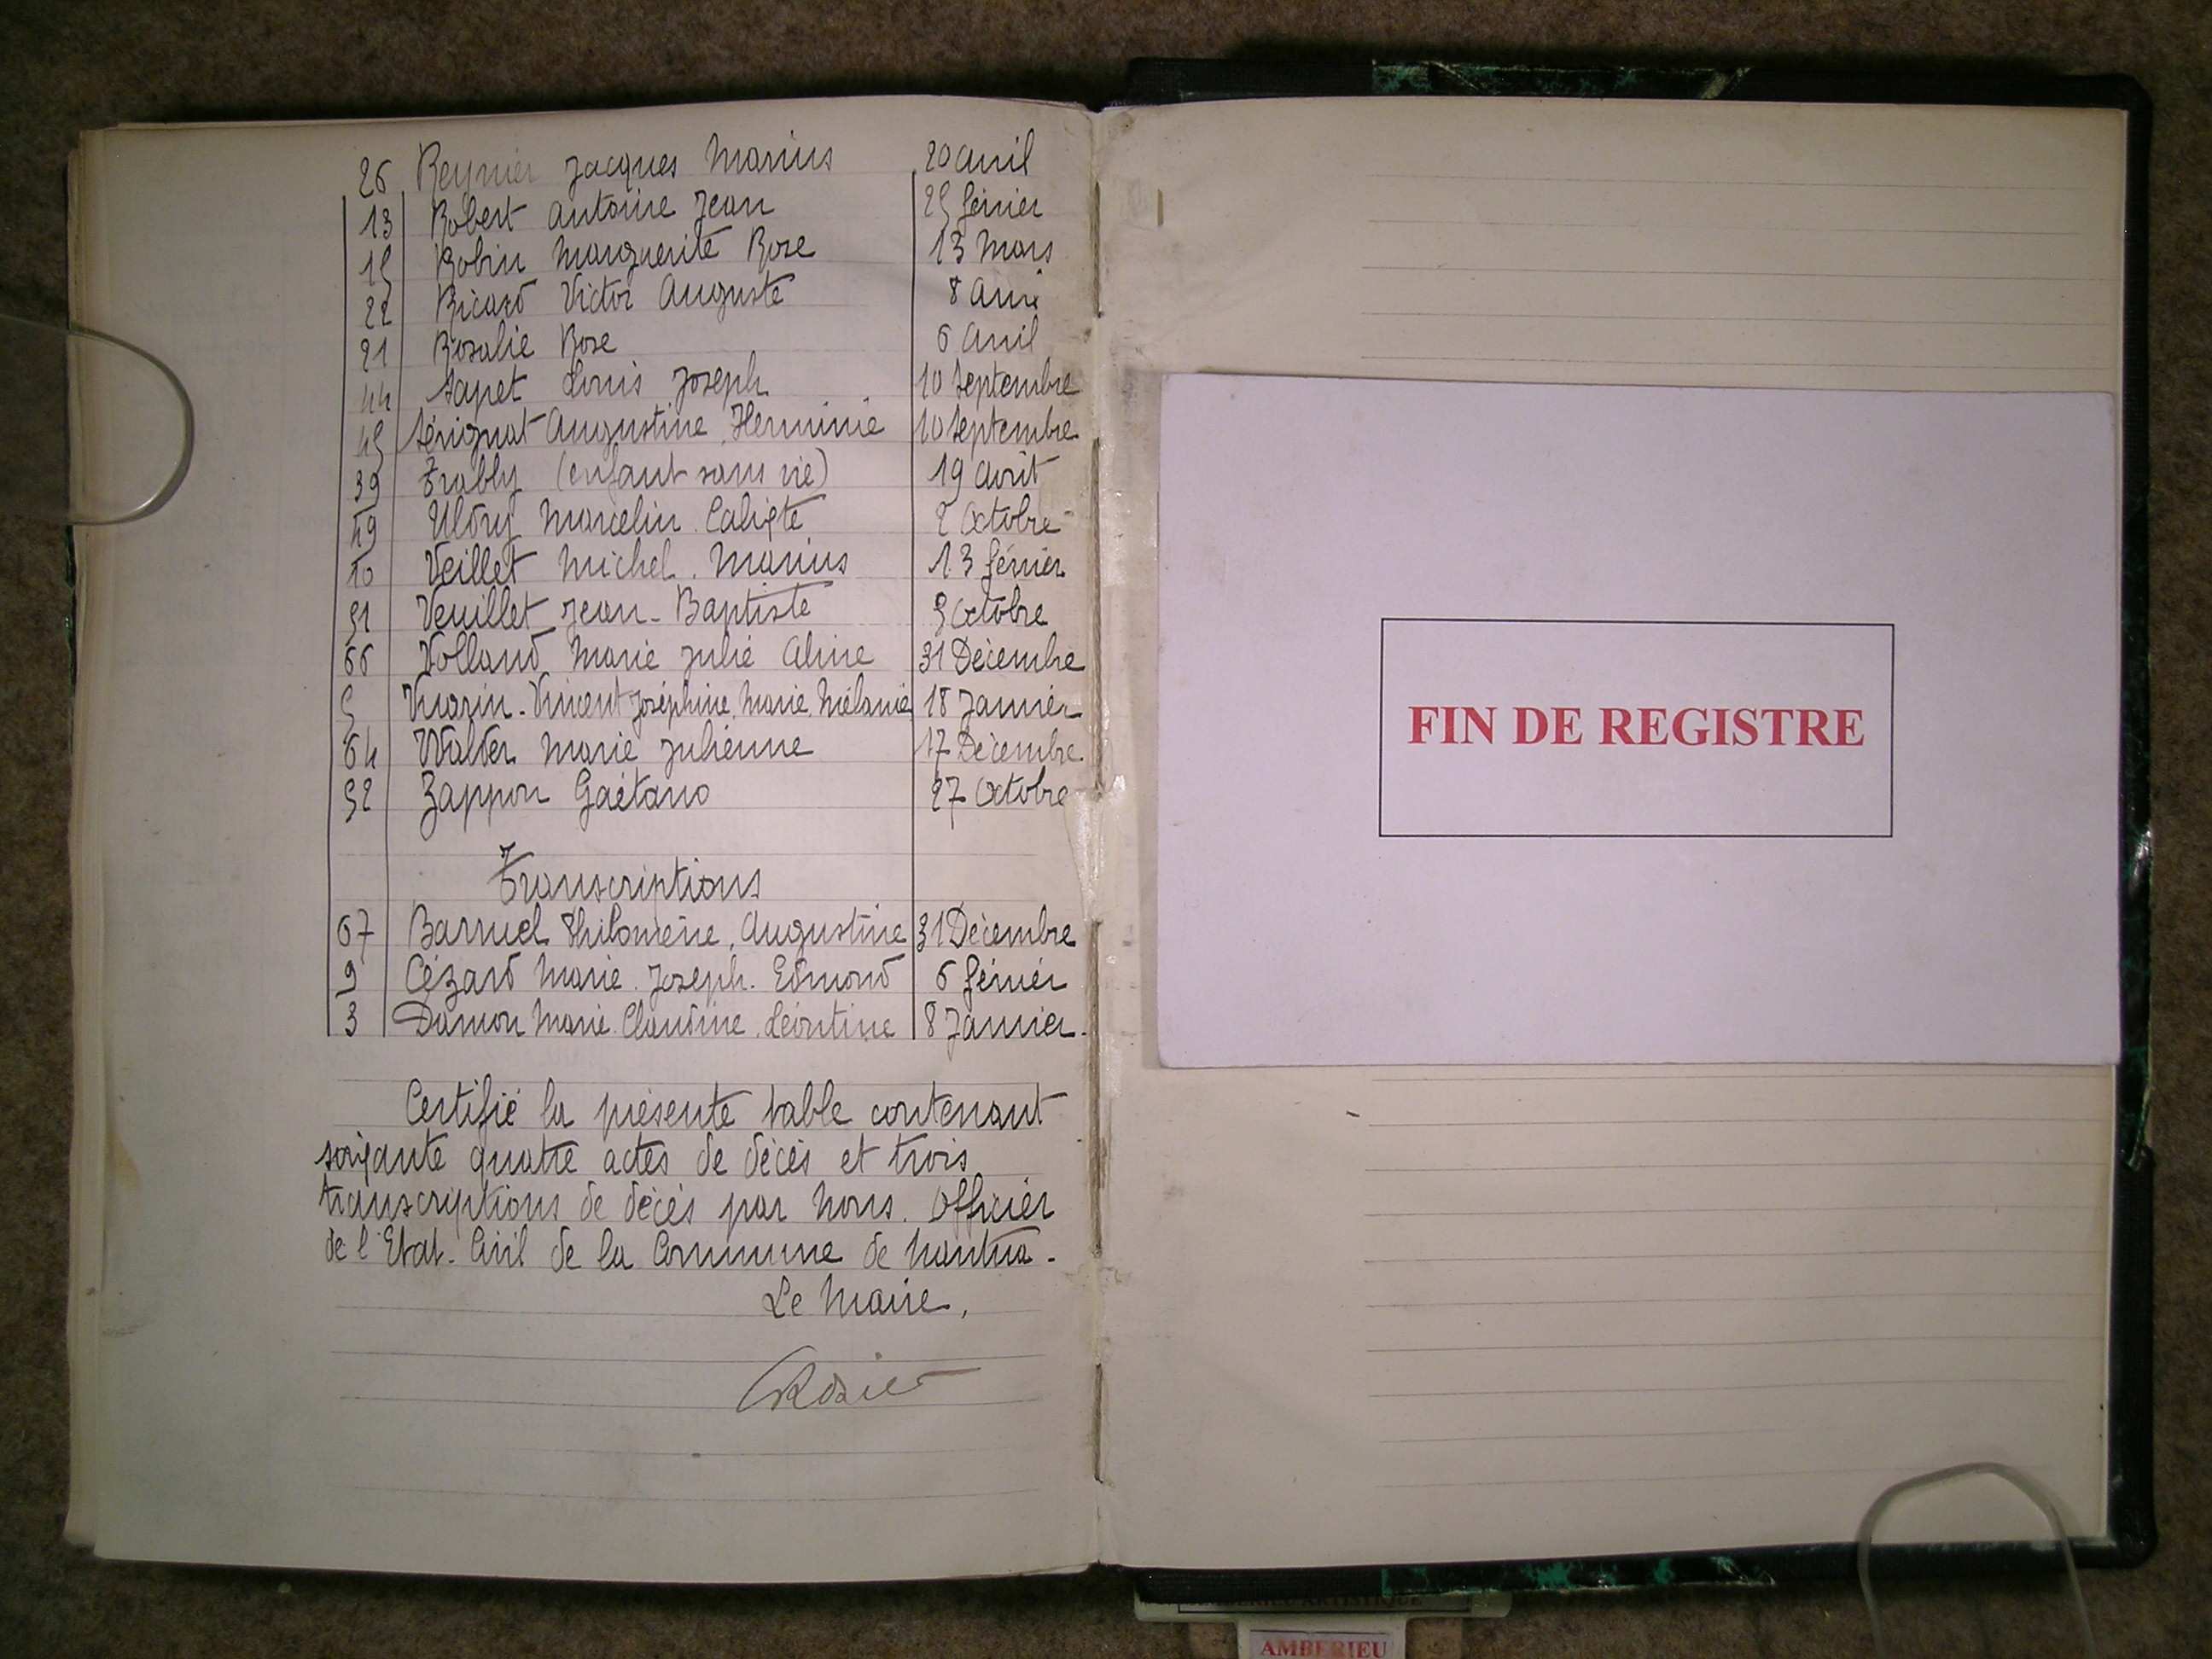 26 Reynier Jacques Marius 20 Avril
13 Robert Antoine Jean 25 février
15 Robin Marguerite Rose 13 Mars
22 Ricard Victor Auguste 8 Avri
21 Rosalie Rose 6 Avril
44 Sapet Louis Joseph 10 Septembre
45 Sérignat Augustine. Herminie 10 Septembre
39 Trably (enfant sans vie) 19 Août
49 Uldry Marcelin. Calixte 2 Octobre
10 Veillet Michel. Marius 13 février
51 Veuillet Jean-Baptiste 5 Octobre
66 Volland Marie Julie Aline 31 Décembre
5 Vincent Joséphine. Marie. Mélanie 18 Janvier
64 Walter Marie Julienne 17 Décembre
52 Zappon Gaétano 27 Octobre
Transcriptions
67 Barruel Philomène, Augustine 31 Décembre
9 Cézard Marie. Joseph. Edmond 6 février
3 Damon Marie. Claudine. Léontine 8 Janvier.
Certifié la présente table contenant
soixante quatre actes de décès et trois
transcriptions de décès par Nous. Officier
de l'Etat-Civil de la Commune de Nantua.
Le Maire,
FIN DE REGISTRE
AMBERIEU